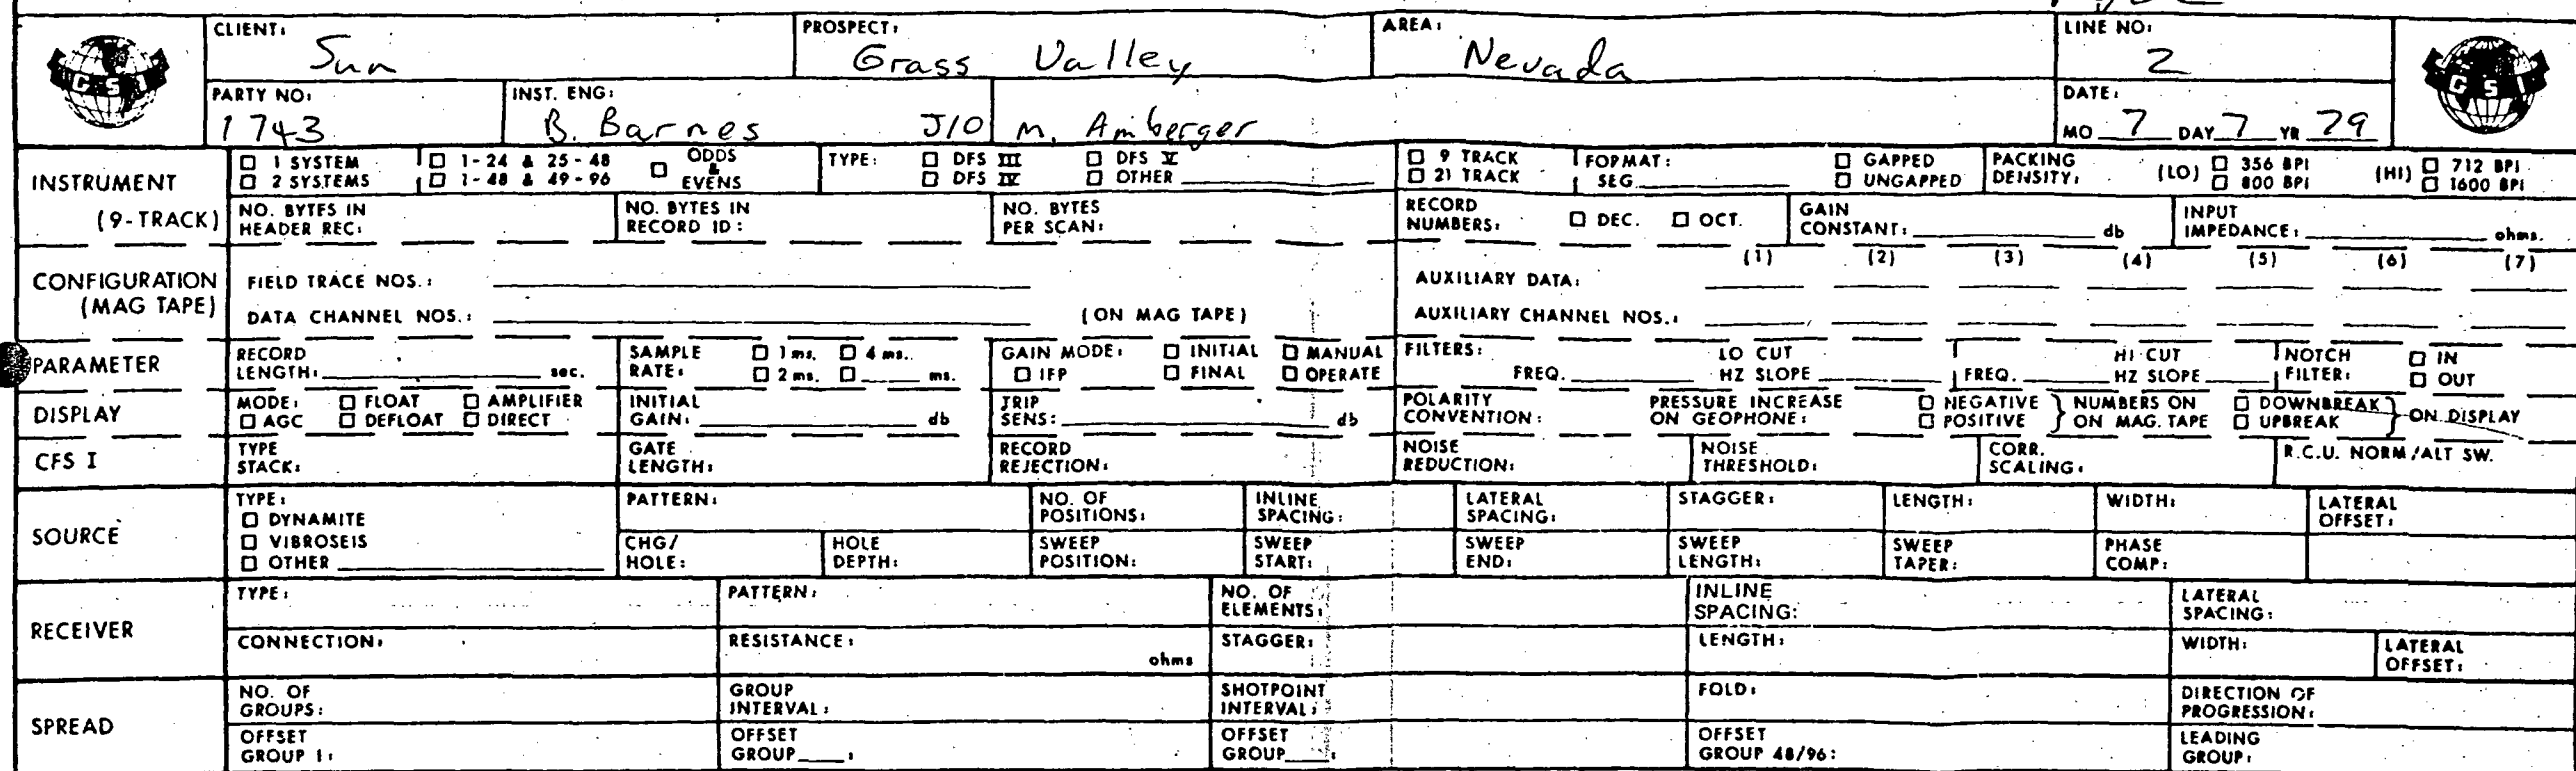 CLIENT: Sun PROSPECT: Grass Valley AREA: Nevada LINE NO: 2
GSI GSI
PARTY NO: 1743 INST. ENG: B. Barnes J/O M. Amberger DATE: MO 7 DAY 7 YR 79
INSTRUMENT (9-TRACK)
☐ 1 SYSTEM ☐ 1-24 & 25-48 ☐ ODDS & EVENS TYPE: ☐ DFS III ☐ DFS V ☐ 9 TRACK FORMAT: ☐ GAPPED PACKING DENSITY: (LO) ☐ 356 BPI (HI) ☐ 712 BPI
☐ 2 SYSTEMS ☐ 1-48 & 49-96 ☐ DFS IV ☐ OTHER ☐ 21 TRACK SEG ☐ UNGAPPED ☐ 800 BPI ☐ 1600 BPI
NO. BYTES IN HEADER REC: NO. BYTES IN RECORD ID: NO. BYTES PER SCAN: RECORD NUMBERS: ☐ DEC. ☐ OCT. GAIN CONSTANT: db INPUT IMPEDANCE: ohms.
CONFIGURATION (MAG TAPE)
(1) (2) (3) (4) (5) (6) (7)
FIELD TRACE NOS.: AUXILIARY DATA:
DATA CHANNEL NOS.: (ON MAG TAPE) AUXILIARY CHANNEL NOS.:
PARAMETER
RECORD LENGTH: sec. SAMPLE RATE: ☐ 1 ms. ☐ 4 ms. ☐ 2 ms. ☐ ms. GAIN MODE: ☐ INITIAL ☐ MANUAL ☐ IFP ☐ FINAL ☐ OPERATE FILTERS: FREQ. LO CUT HZ SLOPE FREQ. HI CUT HZ SLOPE NOTCH FILTER: ☐ IN ☐ OUT
DISPLAY
MODE: ☐ FLOAT ☐ AMPLIFIER ☐ AGC ☐ DEFLOAT ☐ DIRECT INITIAL GAIN: db TRIP SENS: db POLARITY CONVENTION: PRESSURE INCREASE ON GEOPHONE: ☐ NEGATIVE ☐ POSITIVE } NUMBERS ON ON MAG. TAPE ☐ DOWNBREAK ☐ UPBREAK } ON DISPLAY
CFS I
TYPE STACK: GATE LENGTH: RECORD REJECTION: NOISE REDUCTION: NOISE THRESHOLD: CORR. SCALING: R.C.U. NORM/ALT SW.
SOURCE
TYPE: ☐ DYNAMITE ☐ VIBROSEIS ☐ OTHER
PATTERN: NO. OF POSITIONS: INLINE SPACING: LATERAL SPACING: STAGGER: LENGTH: WIDTH: LATERAL OFFSET:
CHG/HOLE: HOLE DEPTH: SWEEP POSITION: SWEEP START: SWEEP END: SWEEP LENGTH: SWEEP TAPER: PHASE COMP:
RECEIVER
TYPE: PATTERN: NO. OF ELEMENTS: INLINE SPACING: LATERAL SPACING:
CONNECTION: RESISTANCE: ohms STAGGER: LENGTH: WIDTH: LATERAL OFFSET:
SPREAD
NO. OF GROUPS: GROUP INTERVAL: SHOTPOINT INTERVAL: FOLD: DIRECTION OF PROGRESSION:
OFFSET GROUP 1: OFFSET GROUP : OFFSET GROUP : OFFSET GROUP 48/96: LEADING GROUP: